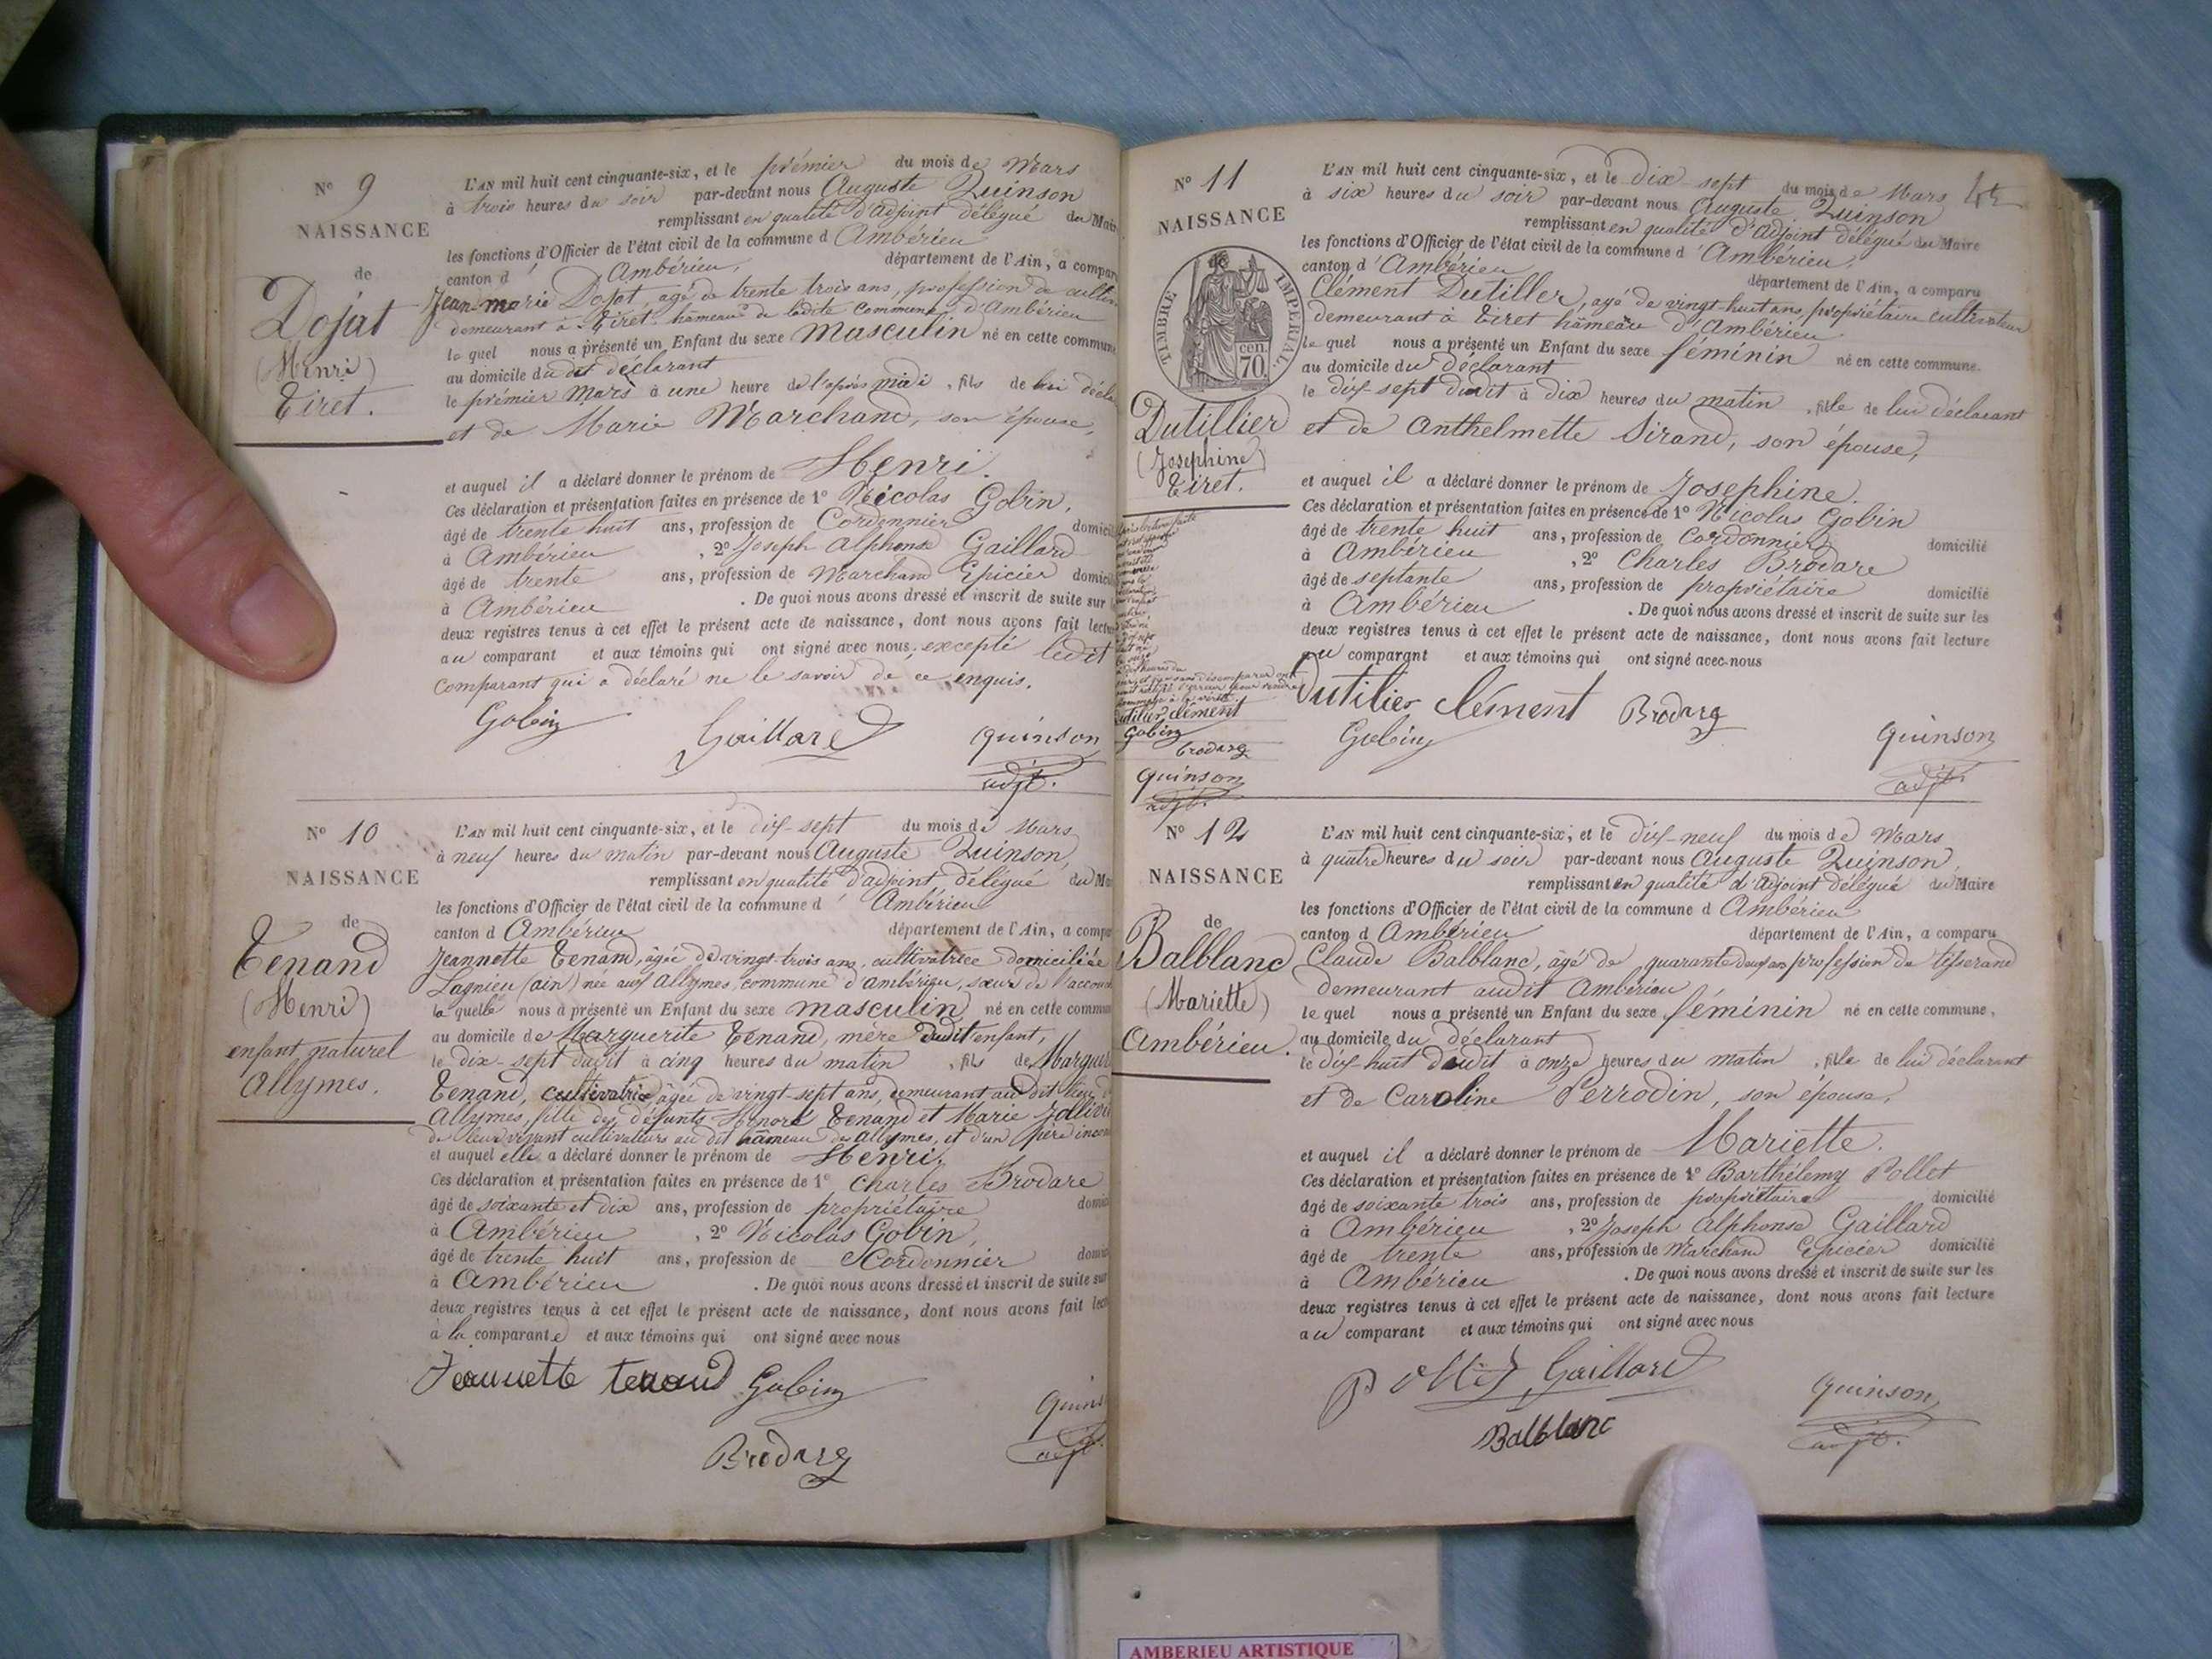 N° 9
NAISSANCE
de
Dojat
(Henri)
Tiret.
L'AN mil huit cent cinquante-six, et le prémier du mois de Mars
à trois heures du soir par-devant nous Auguste Quinson
remplissant en qualité d'adjoint délégué du Mair
les fonctions d'Officier de l'état civil de la commune d'Ambérieu
canton d'Ambérieu, département de l'Ain, a compar
Jean-marie Dojat, agé de trente trois ans, profession de cultiv
demeurant à Tiret hâmeau de ladite commune d'Ambérieu
le quel nous a présenté un Enfant du sexe masculin né en cette commune
au domicile du dit déclarant
le prémier Mars à une heure de l'après midi, fils de lui décla
et de Marie Marchand, son épouse,
et auquel il a déclaré donner le prénom de Henri.
Ces déclaration et présentation faites en présence de 1° Nicolas Gobin,
âgé de trente huit ans, profession de Cordonnier domicil
à Ambérieu, 2° Joseph Alphonse Gaillard
âgé de trente ans, profession de Marchand Epicier domici
à Ambérieu. De quoi nous avons dressé et inscrit de suite sur
deux registres tenus à cet effet le présent acte de naissance, dont nous avons fait lectu
au comparant et aux témoins qui ont signé avec nous, excepté ledit
comparant qui a déclaré ne le savoir de ce enquis.
Gobin Gaillard quinson
adjt.
N° 10
NAISSANCE
de
Tenand
(Henri)
enfant naturel
Allymes.
L'AN mil huit cent cinquante-six, et le dix-sept du mois de Mars
à neuf heures du matin par-devant nous Auguste Quinson,
remplissant en qualité d'adjoint délégué du Ma
les fonctions d'Officier de l'état civil de la commune d'Ambérieu
canton d'Ambérieu département de l'Ain, a compa
Jeannette Tenand, âgée de vingt-trois ans, cultivatrice domiciliée
Lagnieu (ain) née aux Allymes, commune d'ambérieu, sœur de l'accouch
la quelle nous a présenté un Enfant du sexe masculin né en cette commun
au domicile de Marguerite Tenand, mère dudit enfant,
le dix-sept dudit à cinq heures du matin, fils de Marguer
Tenand, cultivatrice âgée de vingt-sept ans, demeurant au dit lieu
Allymes, fille des défunts Honoré Tenand et Marie
de leur vivant cultivateurs au dit hâmeau des allymes, et d'un père incon
et auquel elle a déclaré donner le prénom de Henri.
Ces déclaration et présentation faites en présence de 1° Charles Brodare
âgé de soixante et dix ans, profession de propriétaire domici
à Ambérieu, 2° Nicolas Gobin,
âgé de trente huit ans, profession de Cordonnier domici
à Ambérieu. De quoi nous avons dressé et inscrit de suite sur
deux registres tenus à cet effet le présent acte de naissance, dont nous avons fait lect
à la comparante et aux témoins qui ont signé avec nous
Jeannette tenand Gobin
Brodare
quins
adjt.
N° 11
NAISSANCE
TIMBRE IMPERIAL.
cen.
70.
Dutillier
(Josephine)
Tiret.
L'AN mil huit cent cinquante-six, et le dix-sept du mois de Mars
à six heures du soir par-devant nous Auguste Quinson
remplissant en qualité d'adjoint délégué du Maire
les fonctions d'Officier de l'état civil de la commune d'Ambérieu,
canton d'Ambérieu département de l'Ain, a comparu
Clément Dutiller, agé de vingt-huit ans, propriétaire cultivateur
demeurant à Tiret hâmeau d'Ambérieu
le quel nous a présenté un Enfant du sexe féminin né en cette commune.
au domicile du déclarant
le dix-sept dudit à dix heures du matin, fille de lui déclarant
et de Anthelmette Sirand, son épouse,
et auquel il a déclaré donner le prénom de Josephine.
Ces déclaration et présentation faites en présence de 1° Nicolas Gobin
âgé de trente huit ans, profession de Cordonnier domicilié
à Ambérieu, 2° Charles Brodare
âgé de septante ans, profession de propriétaire domicilié
à Ambérieu. De quoi nous avons dressé et inscrit de suite sur les
deux registres tenus à cet effet le présent acte de naissance, dont nous avons fait lecture
au comparant et aux témoins qui ont signé avec nous
Dutilier Clément Brodare
Gobin quinson
adjt.
dutilier clément
Gobin
brodare
quinson
adjt.
N° 12
NAISSANCE
de
Balblanc
(Mariette)
Ambérieu.
L'AN mil huit cent cinquante-six, et le dix-neuf du mois de Mars
à quatre heures du soir par-devant nous Auguste Quinson
remplissant en qualité d'adjoint délégué du Maire
les fonctions d'Officier de l'état civil de la commune d Ambérieu
canton d Ambérieu département de l'Ain, a comparu
Claude Balblanc, âgé de quarante deux ans profession de tisserand
demeurant audit Ambérieu
le quel nous a présenté un Enfant du sexe féminin né en cette commune,
au domicile du déclarant
le dix-huit dudit à onze heures du matin, fille de lui déclarant
et de Caroline Perrodin, son épouse,
et auquel il a déclaré donner le prénom de Mariette.
Ces déclaration et présentation faites en présence de 1° Barthélemy Pollet
âgé de soixante trois ans, profession de propriétaire domicilié
à Ambérieu, 2° Joseph Alphonse Gaillard
âgé de trente ans, profession de Marchand Epicier domicilié
à Ambérieu. De quoi nous avons dressé et inscrit de suite sur les
deux registres tenus à cet effet le présent acte de naissance, dont nous avons fait lecture
au comparant et aux témoins qui ont signé avec nous
Pollet Gaillard quinson
Balblanc adjt.
AMBERIEU ARTISTIQUE